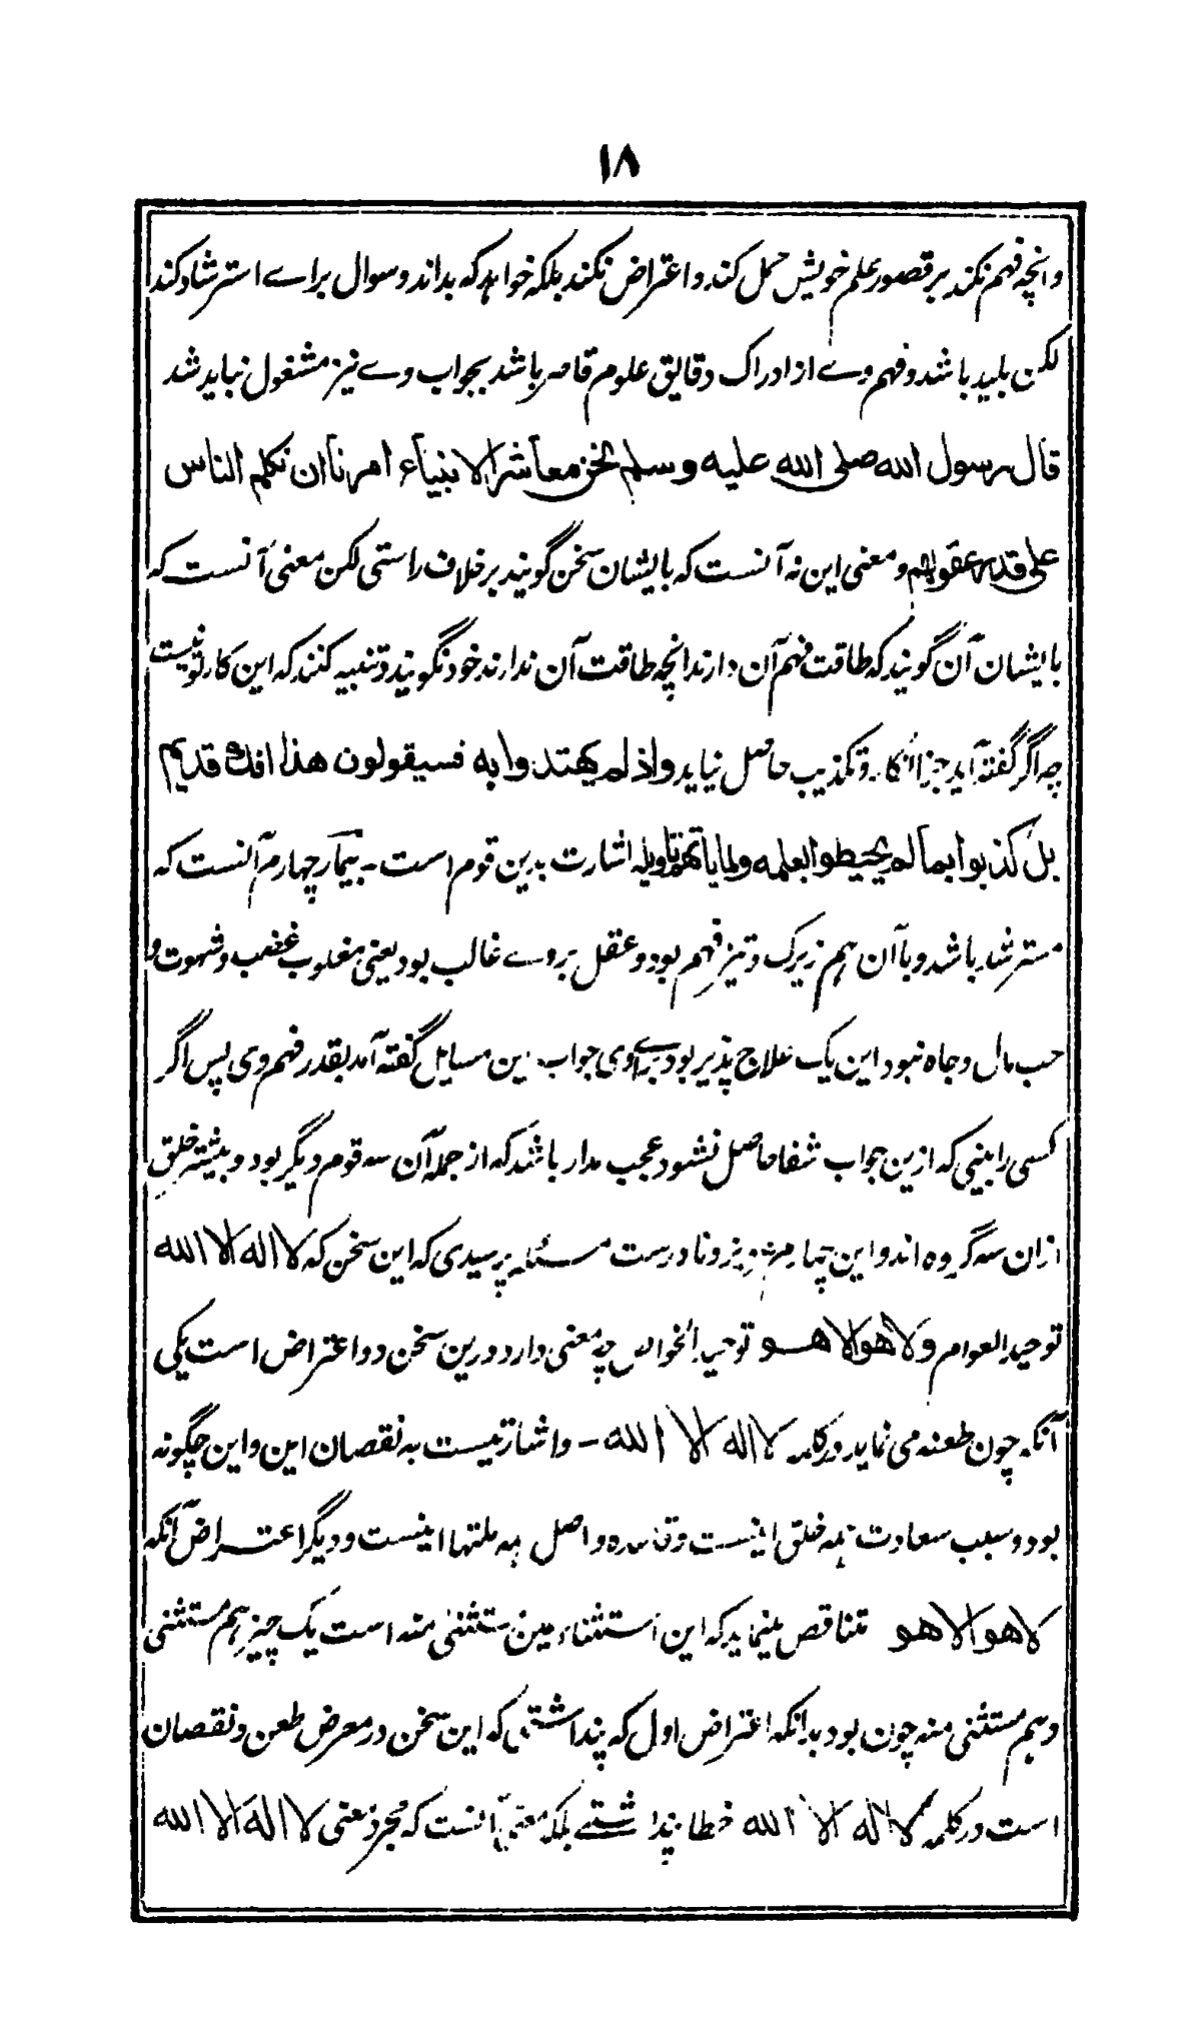 ۱۸
وانچه فهم نکند بر قصور علم خویش حمل کند و اعتراض نکند بلکه خواهد که بداند و سوال براے استرشاد کند
لکن بلید باشد و فهم وے از ادراک دقایق علوم قاصر باشد بجواب وے نیز مشغول نباید شد
قال رسول الله صلی الله علیه وسلم نحن معاشر الانبیآء امرنا ان نکلم الناس
علی قدر عقولهم و معنی این نه آنست که بایشان سخن گویند بر خلاف راستی لکن معنی آنست که
بایشان آن گویند که طاقت فهم آن دارند انچه طاقت آن ندارند خود نگویند و تنبیه کنند که این کار تو نیست
چه اگر گفته آید جز انکار و تکذیب حاصل نیاید واذ لم یهتدوا به فسیقولون هذا افك قدیم
بل کذبوا بمآ لم یحیطوا بعلمه ولما یاتهم تاویله اشارت بدین قوم است - بیمار چهارم آنست که
مسترشد باشد و با آن هم زیرک و تیز فهم بود و عقل بر وے غالب بود یعنی مغلوب غضب و شهوت و
حب مال و جاه نبود این یک علاج پذیر بود براے وی جواب این مسایل گفته آمد بقدر فهم وی پس اگر
کسی را بینی که ازین جواب شفا حاصل نشود عجب مدار باشد که از جمله آن سه قوم دیگر بود و بیشتر خلق
ازان سه گروه اند و این چهارم عزیز و نادرست مسئله پرسیدی که این سخن که لا اله الا الله
توحید العوام و لا هو الا هو توحید الخواص چه معنی دارد درین سخن دو اعتراض است یکی
آنکه چون طعنه می نماید در کلمه لا اله الا الله - و اشارتیست به نقصان این و این چگونه
بود و سبب سعادت همه خلق اینست و قاعده و اصل همه ملتها اینست و دیگر اعتراض آنکه
لا هو الا هو تناقص مینماید که این استثناء عین مستثنی منه است یک چیز هم مستثنی
و هم مستثنی منه چون بود بدانکه اعتراض اول که پنداشتی که این سخن در معرض طعن و نقصان
است در کلمه لا اله الا الله خطا پنداشتے بلکه معنی آنست که مجرد معنی لا اله الا الله